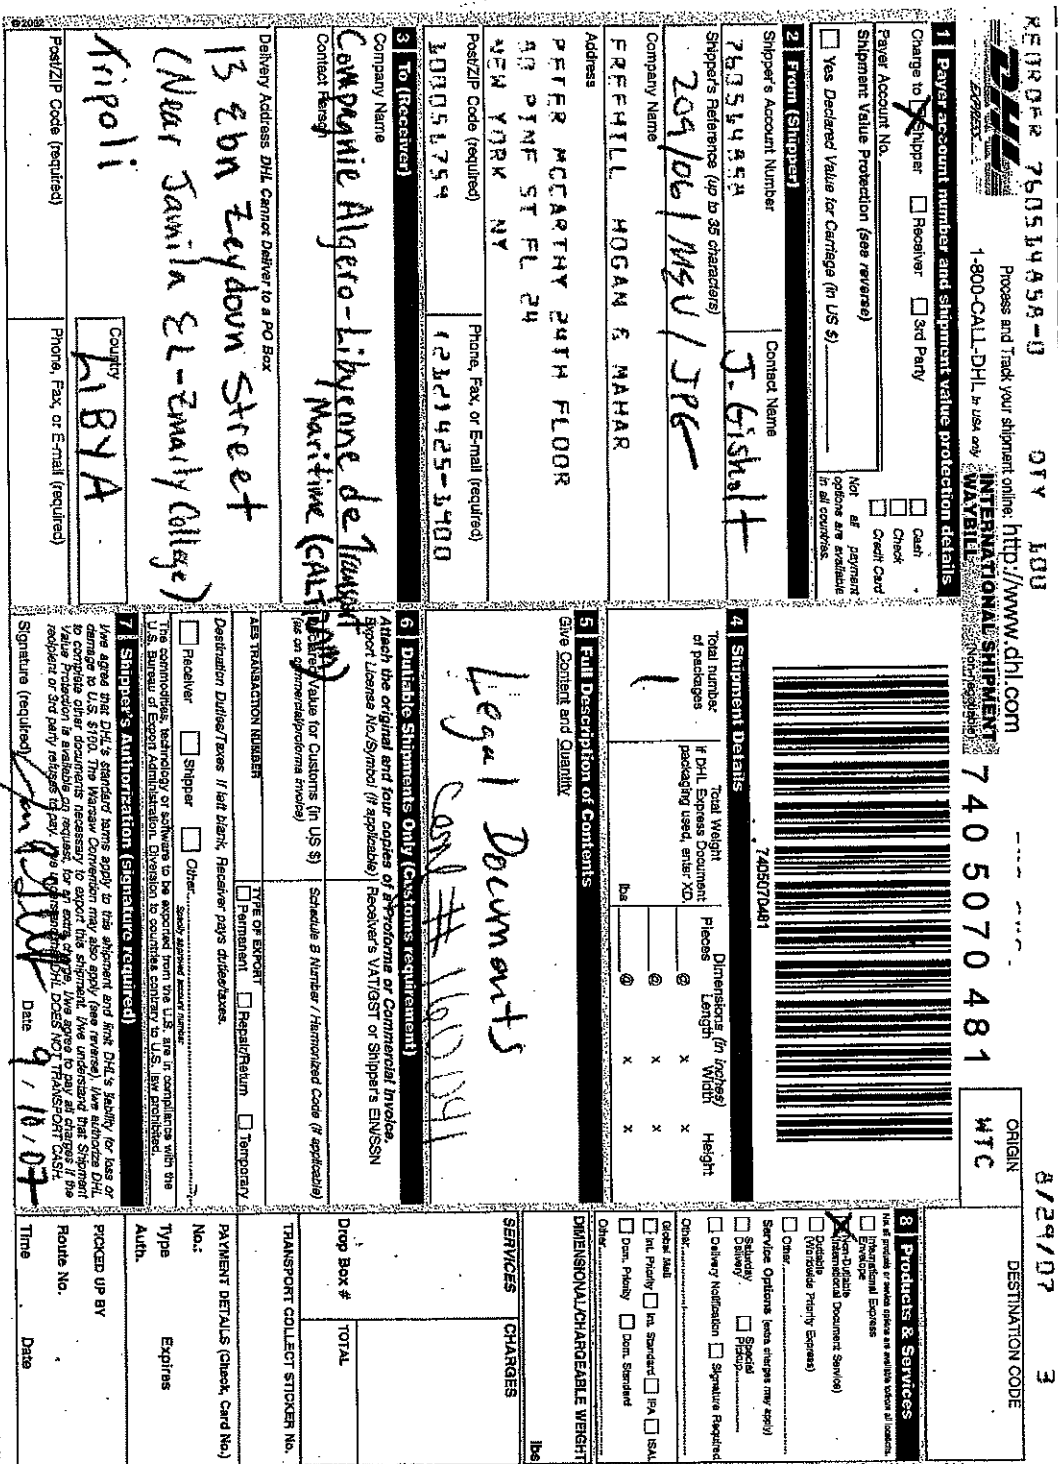 REORDER 760514958-0 QTY 100
8/29/07 3
DHL
EXPRESS
Process and Track your shipment online: http://www.dhl.com
1-800-CALL-DHL in USA only
INTERNATIONAL SHIPMENT
WAYBILL (Non-Negotiable)
740 5070 481
ORIGIN
WTC
DESTINATION CODE
1 Payer account number and shipment value protection details
Charge to Shipper Receiver 3rd Party
Cash
Check
Credit Card
Payer Account No.
Shipment Value Protection (see reverse)
Not all payment options are available in all countries.
Yes Declared Value for Carriage (in US $)
2 From (Shipper)
Shipper's Account Number
Contact Name
J. Gisholt
Shipper's Reference (up to 35 characters)
209/06/MSU/JPG
Company Name
FREEHILL HOGAN & MAHAR
Address
PETER MCCARTHY 24TH FLOOR
80 PINE ST FL 24
NEW YORK NY
Post/ZIP Code (required)
100051759
Phone, Fax, or E-mail (required)
(212)425-1900
3 To (Receiver)
Company Name
Compagnie Algero-Libyenne de Transport
Maritime (CALTRAM)
Contact Person
Delivery Address DHL Cannot Deliver to a PO Box
13 Ebn Zeydoun Street
(Near Jamila El-Zmaily College)
Tripoli
Country
LIBYA
Post/ZIP Code (required)
Phone, Fax, or E-mail (required)
©2002
7405070481
4 Shipment Details
Total number of packages
1
Total Weight
If DHL Express Document packaging used, enter XD.
lbs
Dimensions (in inches)
Pieces Length Width Height
@ x x
@ x x
@ x x
5 Full Description of Contents
Give Content and Quantity
Legal Documents
Case # 160041
6 Dutiable Shipments Only (Customs requirement)
Attach the original and four copies of a Proforma or Commercial Invoice.
Export License No./Symbol (if applicable)
Receiver's VAT/GST or Shipper's EIN/SSN
Declared Value for Customs (in US $)
(as on commercial/proforma invoice)
Schedule B Number / Harmonized Code (if applicable)
AES TRANSACTION NUMBER
TYPE OF EXPORT
Permanent Repair/Return Temporary
Destination Duties/Taxes If left blank, Receiver pays duties/taxes.
Receiver Shipper Other
Specify approved account number
The commodities, technology or software to be exported from the U.S. are in compliance with the
U.S. Bureau of Export Administration. Diversion to countries contrary to U.S. law prohibited.
7 Shipper's Authorization (signature required)
I/we agree that DHL's standard terms apply to this shipment and limit DHL's liability for loss or
damage to U.S. $100. The Warsaw Convention may also apply (see reverse). I/we authorize DHL
to complete other documents necessary to export this shipment. I/we understand that Shipment
Value Protection is available on request, for an extra charge. I/we agree to pay all charges if the
recipient or 3rd party refuses to pay. I/we understand that DHL DOES NOT TRANSPORT CASH.
Signature (required)
Date 9/10/07
8 Products & Services
Not all products or service options are available to/from all locations.
International Express Envelope
Non-Dutiable (International Document Service)
Dutiable (Worldwide Priority Express)
Other
Service Options (extra charges may apply)
Saturday Delivery Special Pickup
Delivery Notification Signature Required
Other
Global Mail
Int. Priority Int. Standard IPA ISAL
Dom. Priority Dom. Standard
Other
DIMENSIONAL/CHARGEABLE WEIGHT
lbs
SERVICES CHARGES
Drop Box # TOTAL
TRANSPORT COLLECT STICKER No.
PAYMENT DETAILS (Check, Card No.)
No.:
Type Expires
Auth.
PICKED UP BY
Route No.
Time Date